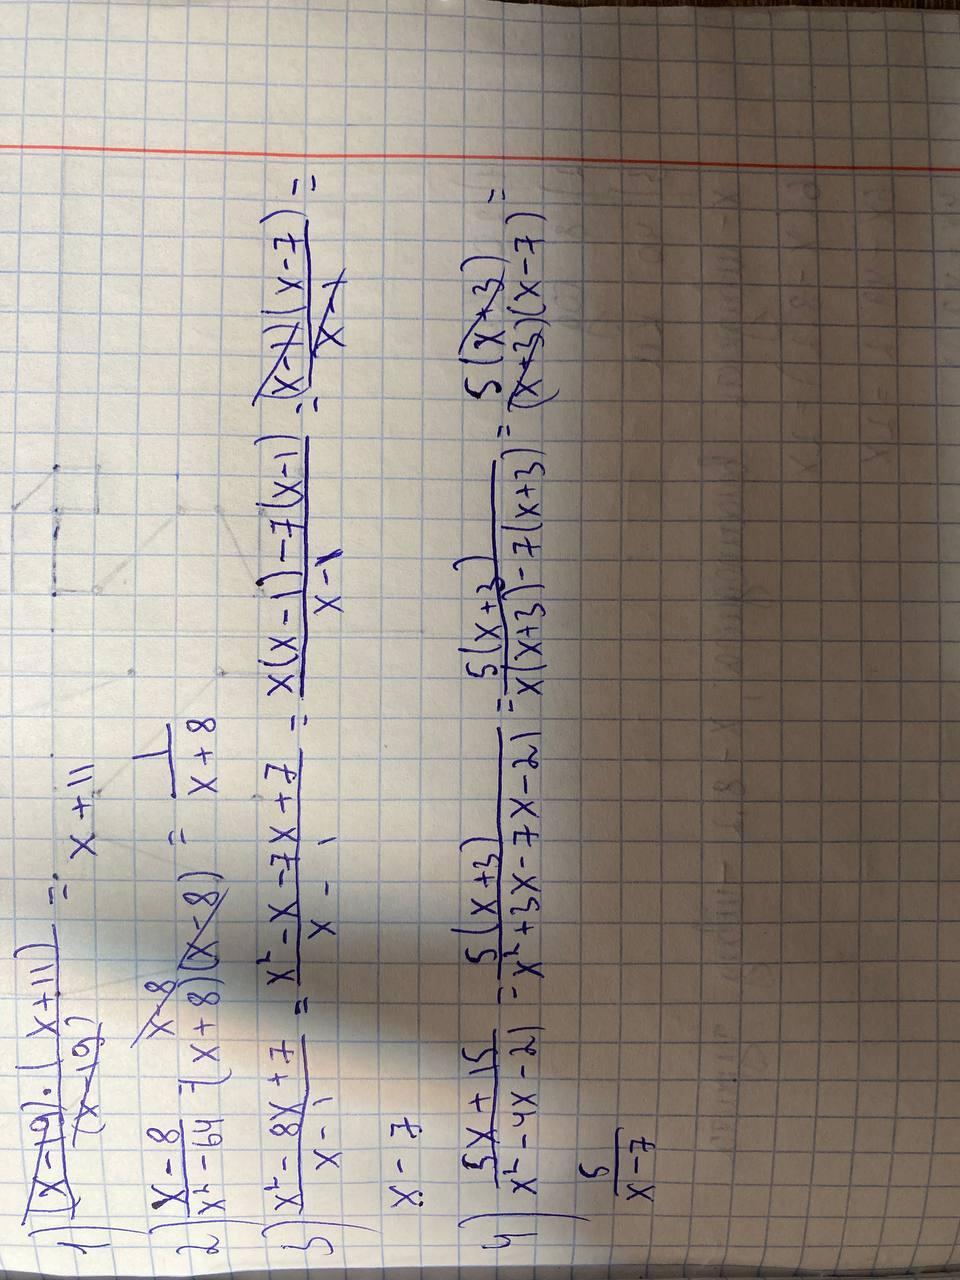 1) (x-19)·(x+11)/(x-19) = x+11
2) x-8/x²-64 = x-8/(x+8)(x-8) = 1/x+8
3) x²-8x+7/x-1 = x²-x-7x+7/x-1 = x(x-1)-7(x-1)/x-1 = (x-1)(x-7)/x-1 =
x-7
4) 5x+15/x²-4x-21 = 5(x+3)/x²+3x-7x-21 = 5(x+3)/x(x+3)-7(x+3) = 5(x+3)/(x+3)(x-7) =
5/x-7